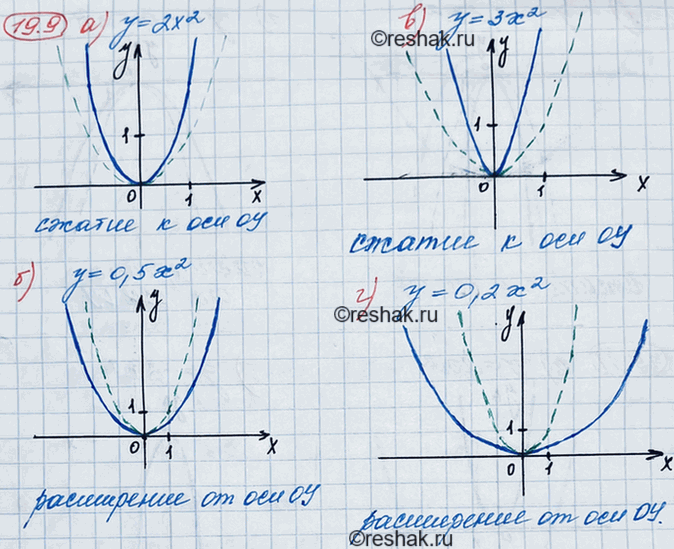 19.9 а) y = 2x²
y
1
0 1 x
сжатие к оси OY
в) y = 3x²
©reshak.ru
y
1
0 1 x
сжатие к оси OY
б) y = 0,5x²
y
1
0 1 x
расширение от оси OY
г) y = 0,2x²
©reshak.ru
y
1
0 1 x
расширение от оси OY.
©reshak.ru